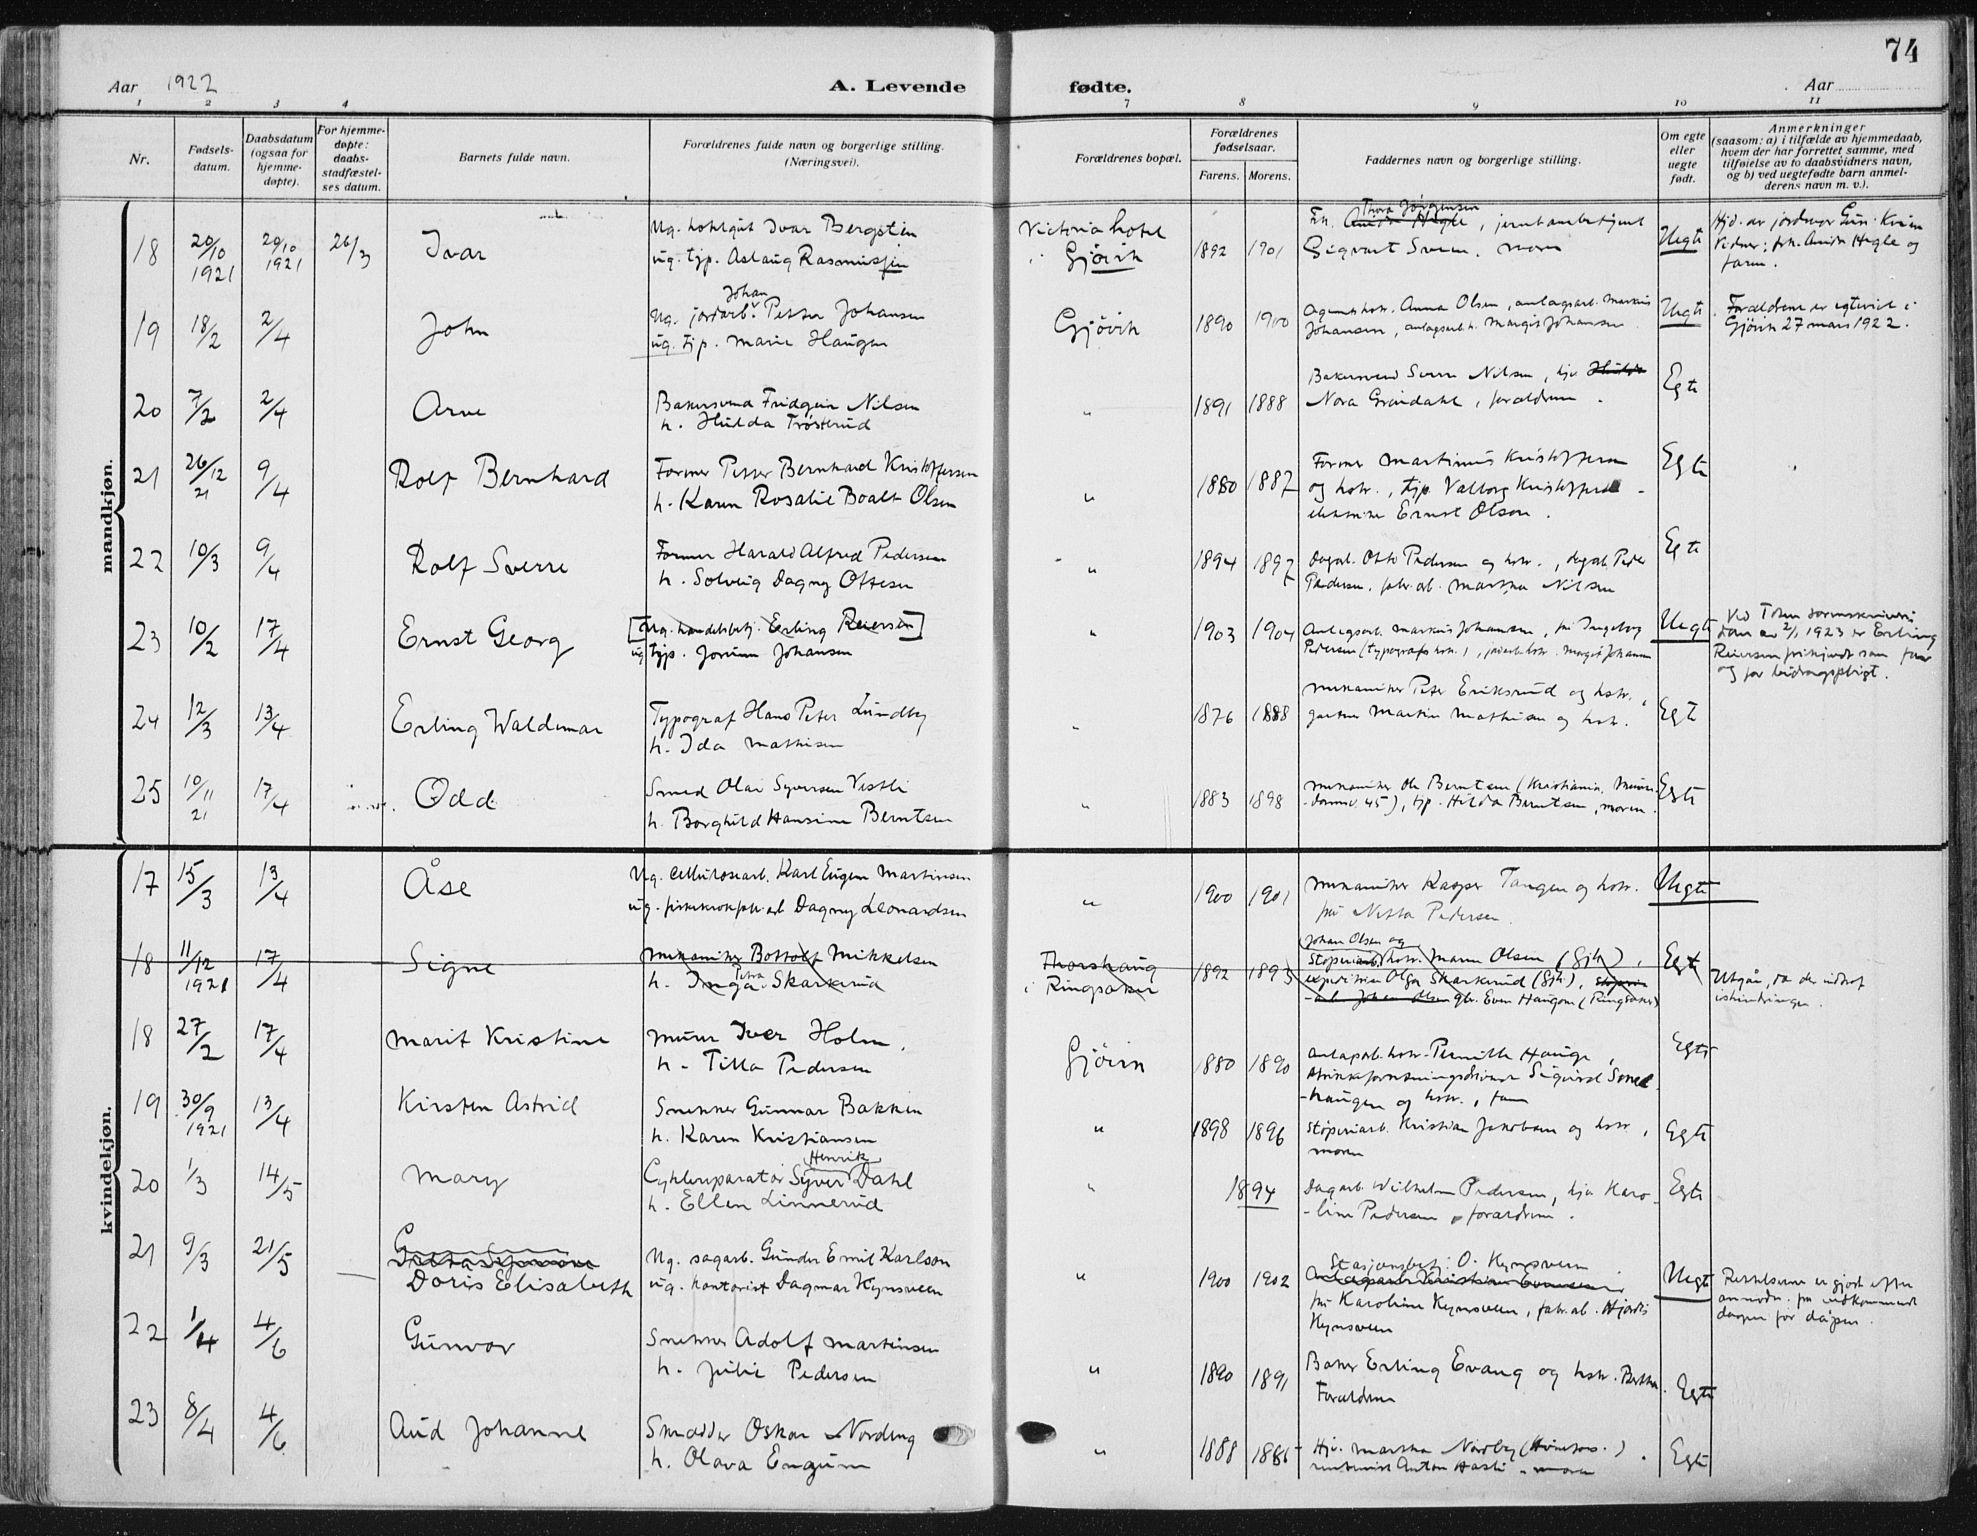 74
Aar 1922
A. Levende fødte.
Aar
1 2 3 4 7 8 9 10 11
Nr.
Fødsels-
datum.
Daabsdatum
(ogsaa for
hjemme-
døpte).
For hjemme-
døpte:
daabs-
stadfæstel-
ses datum.
Barnets fulde navn.
Forældrenes fulde navn og borgerlige stilling.
(Næringsvei).
Forældrenes bopæl.
Forældrenes
fødselsaar.
Farens. Morens.
Faddernes navn og borgerlige stilling.
Om egte
eller
uegte
født.
Anmerkninger
(saasom: a) i tilfælde av hjemmedaab,
hvem der har forrettet samme, med
tilføielse av to daabsvidners navn,
og b) ved uegtefødte barn anmel-
derens navn m. v.).
mandkjøn.
18 20/10 1921 20/10 1921 26/3 Ivar
Ug. Ivar Bergstein
ug. tjp. Aslaug Rasmussen
Victoria hotel
Gjøvik
1892 1901
Thora Jørgensen
Frk. Anida Hegle,
Sigvart Sveen. moren
Uegte
Vidner: frk. Anida Hegle og
faren.
19 18/2 2/4 John
Johan
Ug. jordarb. Petter Johansen
ug. tjp. Marie Haugen
Gjövik
1890 1900
Anna Olsen, anlægsarb. Markus
Johansen, anlægsarb.h. Margit Johansen
Uegte
Forældrene er egteviet i
Gjövik 27 mars 1922.
20 7/2 2/4 Arve
Bakersvend Fridgeir Nilsen
h. Hulda Trösterud
"
1891 1888
Bakersvend Sverre Nilsen, hjv. Hulda
Nora Gröndahl, forældrene.
Egte
21 26/12 21 9/4 Rolf Bernhard
Former Petter Bernhard Kristoffersen
h. Karen Rosalie Boalt Olsen
"
1880 1887
Former Martinus Kristoffersen
og hstr., tjp. Valborg Kristoffersen
Ernst Olsen.
Egte
22 10/3 9/4 Rolf Sverre
Former Harald Alfred Pedersen
h. Solveig Dagny Ottesen
"
1894 1897
Dagarb. Otto Pedersen og hstr., dagarb. Peder
Pedersen, fabr.arb. Martha Nilsen
Egte
23 10/2 17/4 Ernst Georg
[Ug. handelsbetj. Erling Reiersen]
ug tjp. Jorunn Johansen
"
1903 1904
Anlægsarb. Markus Johansen, fru Ingeborg
Pedersen (typografs hstr.), jordarb.hstr. Margit Johansen
Uegte
Ved Toten sorenskriveri
dom av 2/1 1923 er Erling
Reiersen frikjendt som far
og for bidragspligt.
24 12/3 13/4 Erling Waldemar
Typograf Hans Peter Lundby
h. Ida Mathisen
"
1876 1888
Mekaniker Peter Eriksrud og hstr.,
gartner Martin Mathisen og hstr.
Egte
25 10/11 21 17/4 Odd
Smed Olai Syversen Vestli
h. Borghild Hansine Berntsen
"
1883 1898
Mekaniker Ole Berntsen (Kristiania,
45), tjp. Hilda Berntsen, moren.
Egte
kvindekjøn.
17 15/3 13/4 Åse
Ug. cellulosearb. Karl Eugen Martinsen
ug. Dagny Leonardsen
"
1900 1901
Mekaniker Kasper Tangen og hstr.
frk. Netta Pedersen.
Uegte
18 11/12 1921 17/4 Signe
Mekaniker Bottolf Mikkelsen
Petra
h. Inga Skarkerud
Thorshaug
i Ringsaker
1892 1893
Johan Olsen og
Støperiarb. hstr. Maren Olsen (Gjk),
Olga Skarkerud (Gjk), støperi-
arb. Johan Olsen, gbr. Even Haugom (Ringsaker)
Egte
Utgår, da der indtraf
ishindringer.
18 27/2 17/4 Marit Kristine
Murer Iver Holm.
h. Tilla Pedersen
Gjövik
1880 1890
Pernille Hauge,
Sigurd Smed-
haugen og hstr., faren
Egte
19 30/9 1921 13/4 Kirsten Astrid
Snekker Gunnar Bakken
h. Karen Kristiansen
"
1898 1896
Støperiarb. Kristian Jakobsen og hstr.,
moren
Egte
20 1/3 14/5 Mary
Henrik
Cykkelreparatör Syver Dahl
h. Ellen Linnerud
"
1894
Dagarb. Wilhelm Pedersen, hjv. Karo-
line Pedersen, forældrene.
Egte
21 9/3 21/5
Doris Elisabeth
Ug. sagarb. Gunder Emil Karlson
ug. kontorist Dagmar Kynsveen
"
1900 1902
Stasjonsbetj. O. Kynsveen
Anlægsarb. Kristian Evensen,
frk. Karoline Kynsveen, fabr.arb. Hjördis
Kynsveen
Uegte
Rettelserne er gjort efter
anmodn. fra vedkommende
dagen før dåpen.
22 1/4 4/6 Gunvor
Snekker Adolf Martinsen
h. Julie Pedersen
"
1890 1891
Baker Erling Evang og hstr. Bertha.
Forældrene
Egte
23 8/4 4/6 Aud Johanne
Skrædder Oskar Nordeng
h. Olava Engum
"
1888 1886
Hjv. Martha Nordby
Anton Hasli. moren
Egte